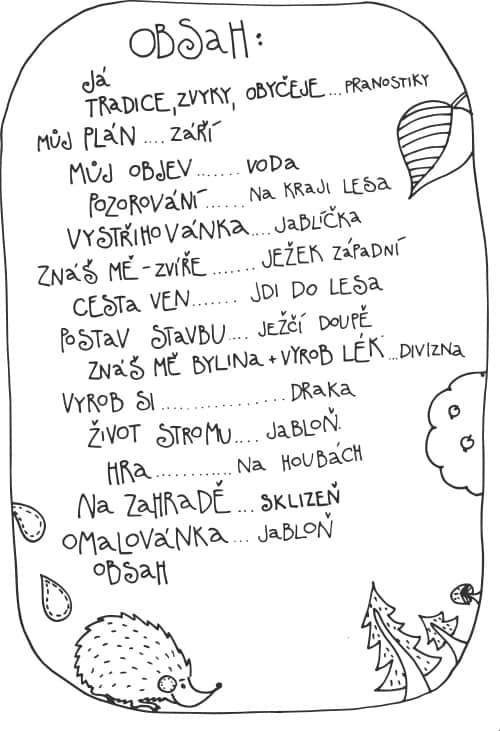 OBSAH:
JÁ
TRADICE, ZVYKY, OBYČEJE... PRANOSTIKY
MŮJ PLÁN .... ZÁŘÍ
MŮJ OBJEV....... VODA
POZOROVÁNÍ...... NA KRAJI LESA
VYSTŘIHOVÁNKA.... JABLÍČKA
ZNÁŠ MĚ - ZVÍŘE ....... JEŽEK ZÁPADNÍ
CESTA VEN....... JDI DO LESA
POSTAV STAVBU.... JEŽČÍ DOUPĚ
ZNÁŠ MĚ BYLINA + VYROB LÉK...DIVIZNA
VYROB SI ............... DRAKA
ŽIVOT STROMU.... JABLOŇ
HRA ............ NA HOUBÁCH
NA ZAHRADĚ ... SKLIZEŇ
OMALOVÁNKA ... JABLOŇ
OBSAH